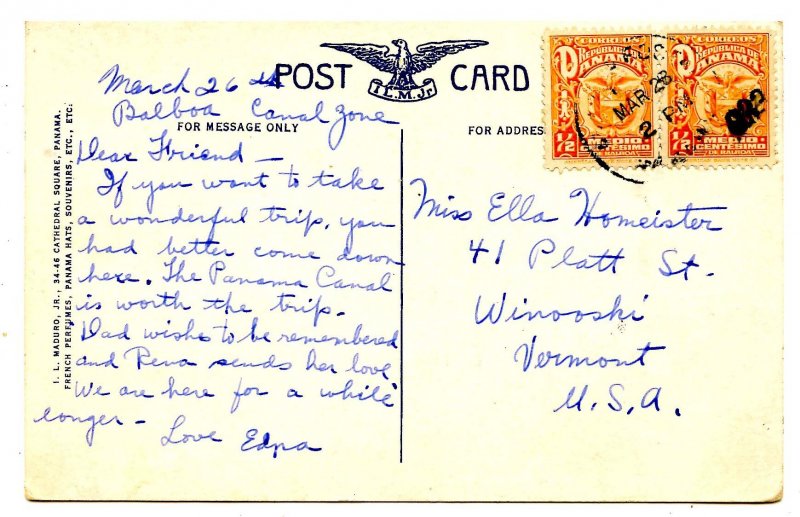 I. L. MADURO, JR., 34-46 CATHEDRAL SQUARE, PANAMA.
FRENCH PERFUMES, PANAMA HATS, SOUVENIRS, ETC., ETC.
POST CARD
I.L.M.Jr.
FOR MESSAGE ONLY
FOR ADDRESS
March 26th
Balboa Canal Zone
Dear Friend -
If you want to take
a wonderful trip, you
had better come down
here. The Panama Canal
is worth the trip.
Dad wishes to be remembered
and Rena sends her love
We are here for a while
longer -
Love Edna
CORREOS
REPUBLICA DE
PANAMA
1/2
MEDIO
CENTESIMO
DE BALBOA
CORREOS
REPUBLICA DE
PANAMA
1/2
MEDIO
CENTESIMO
DE BALBOA
MAR 28
2 PM
Miss Ella Homeister
41 Platt St.
Winooski
Vermont
U.S.A.